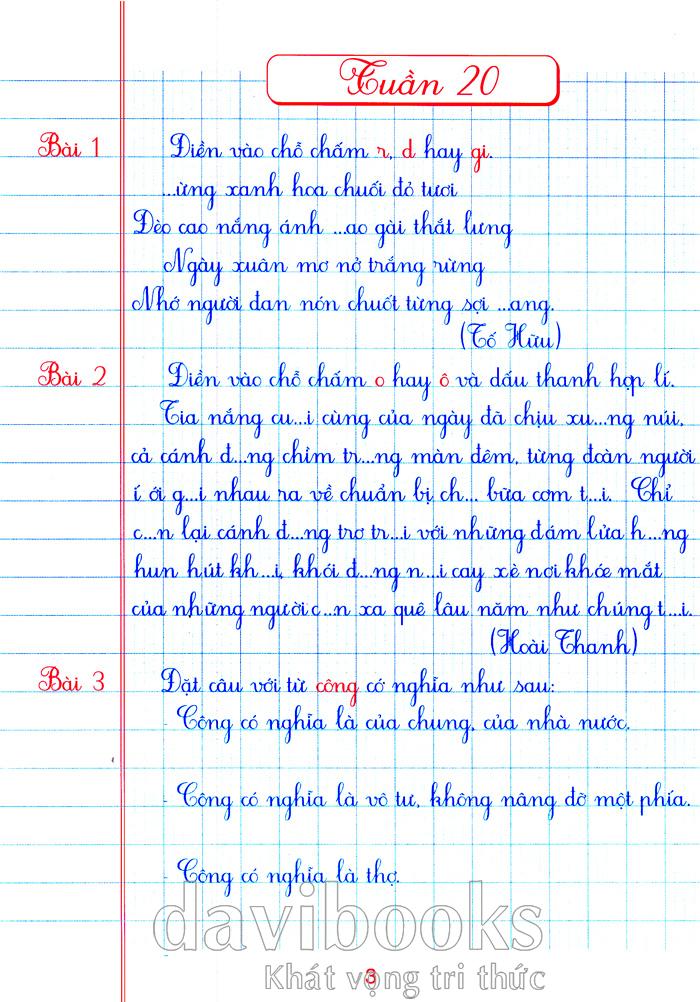 Tuần 20
Bài 1 Điền vào chỗ chấm r, d hay gi.
...ừng xanh hoa chuối đỏ tươi
Đèo cao nắng ánh ...ao gài thắt lưng
Ngày xuân mơ nở trắng rừng
Nhớ người đan nón chuốt từng sợi ...ang.
(Tố Hữu)
Bài 2 Điền vào chỗ chấm o hay ô và dấu thanh hợp lí.
Tia nắng cu...i cùng của ngày đã chịu xu...ng núi,
cả cánh đ...ng chìm tr...ng màn đêm, từng đoàn người
í ới g...i nhau ra về chuẩn bị ch... bữa cơm t...i. Chỉ
c...n lại cánh đ...ng trơ tr...i với những đám lửa h...ng
hun hút kh...i, khói đ...ng n...i cay xè nơi khóe mắt
của những người c...n xa quê lâu năm như chúng t...i.
(Hoài Thanh)
Bài 3 Đặt câu với từ công có nghĩa như sau:
- Công có nghĩa là của chung, của nhà nước.
- Công có nghĩa là vô tư, không nâng đỡ một phía.
- Công có nghĩa là thợ.
davibooks
Khát vọng tri thức
3